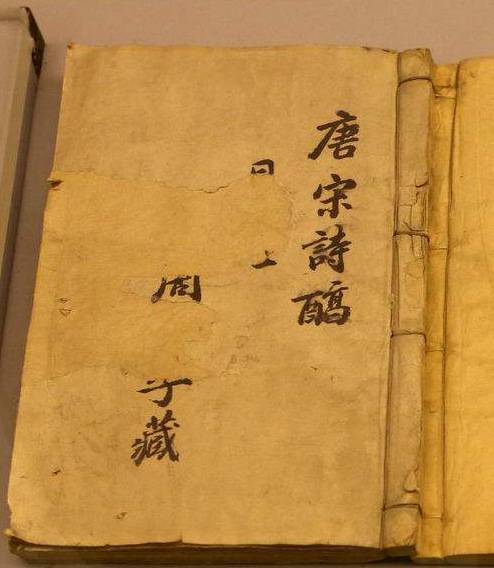 唐宋詩醕
周藏